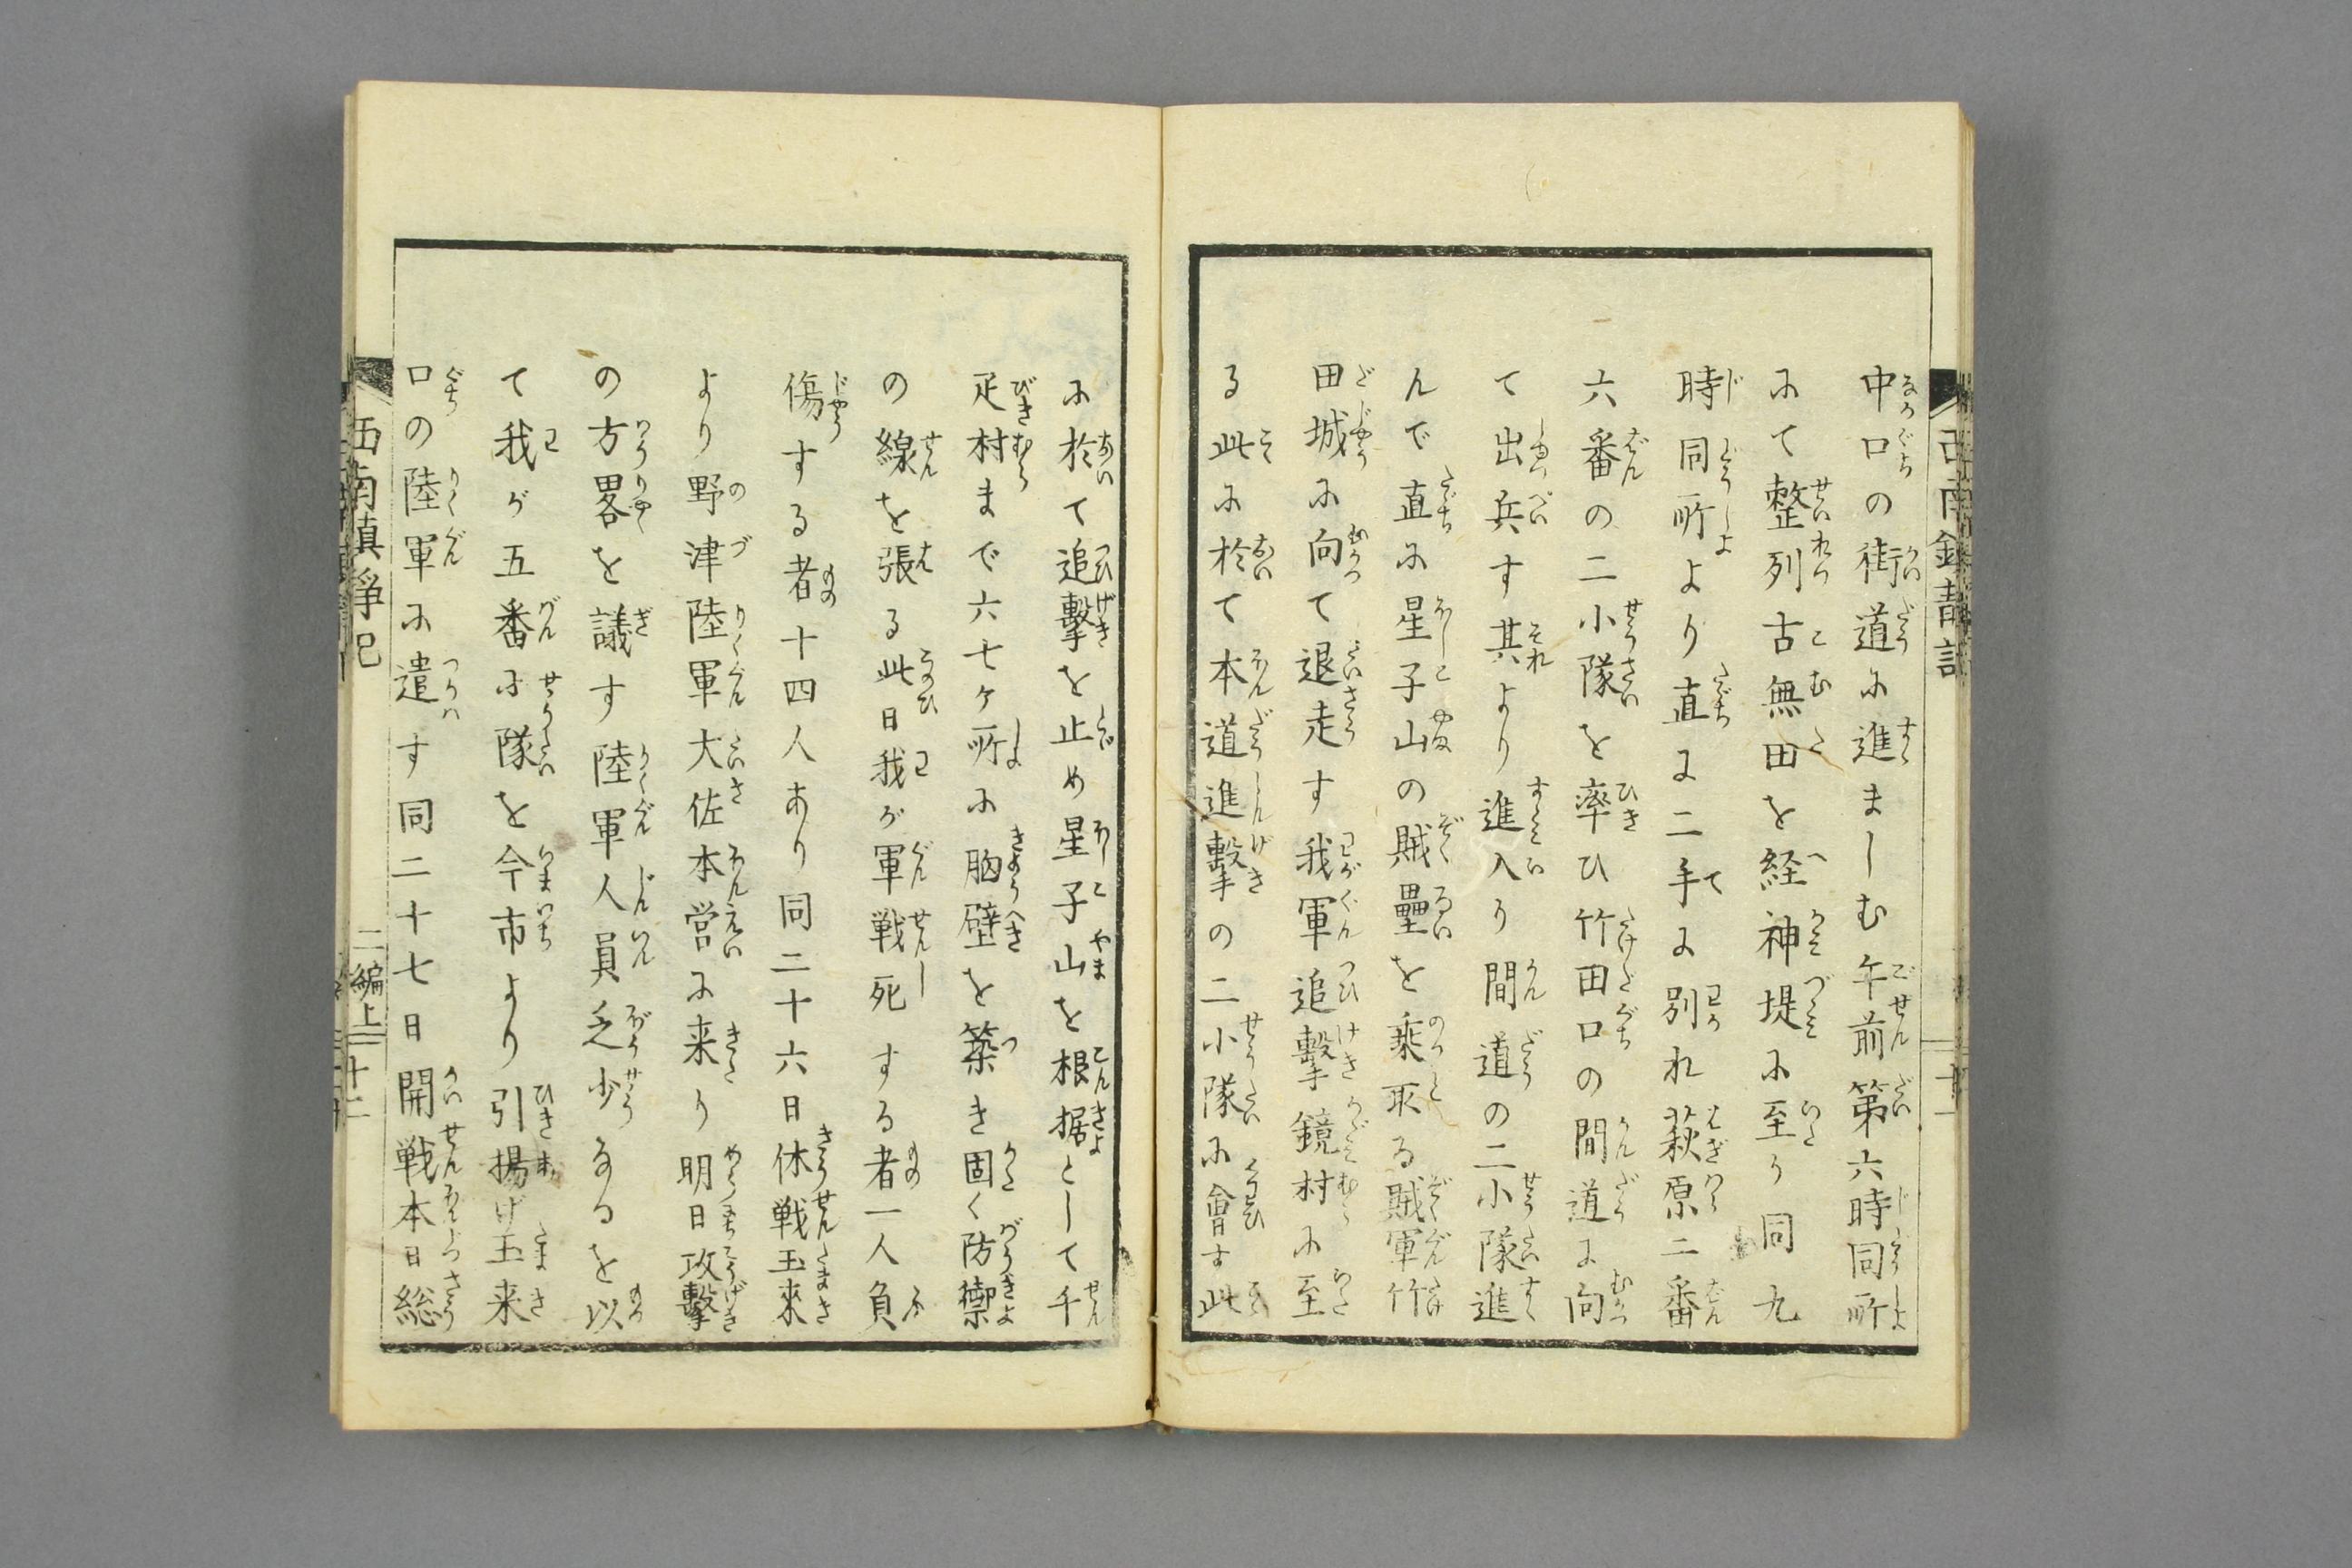 中口の街道に進ましむ午前第六時同所
にて整列古無田を経神堤に至り同九
時同所より直に二手に別れ萩原二番
六番の二小隊を率ひ竹田口の間道に向
て出兵す其より進入り間道の二小隊進
んで直に星子山の賊壘を乗取る賊軍竹
田城に向て退走す我軍追撃鏡村に至
る此に於て本道進撃の二小隊に會す此
に於て追撃を止め星子山を根据として千
疋村まで六七ヶ所に胸壁を築き固く防禦
の線を張る此日我が軍戦死する者一人負
傷する者十四人あり同二十六日休戦玉来
より野津陸軍大佐本営に来り明日攻撃
の方畧を議す陸軍人員乏少なるを以
て我が五番小隊を今市より引揚げ玉来
口の陸軍に遣す同二十七日開戦本日総
西南鎮静記
二編上
十二